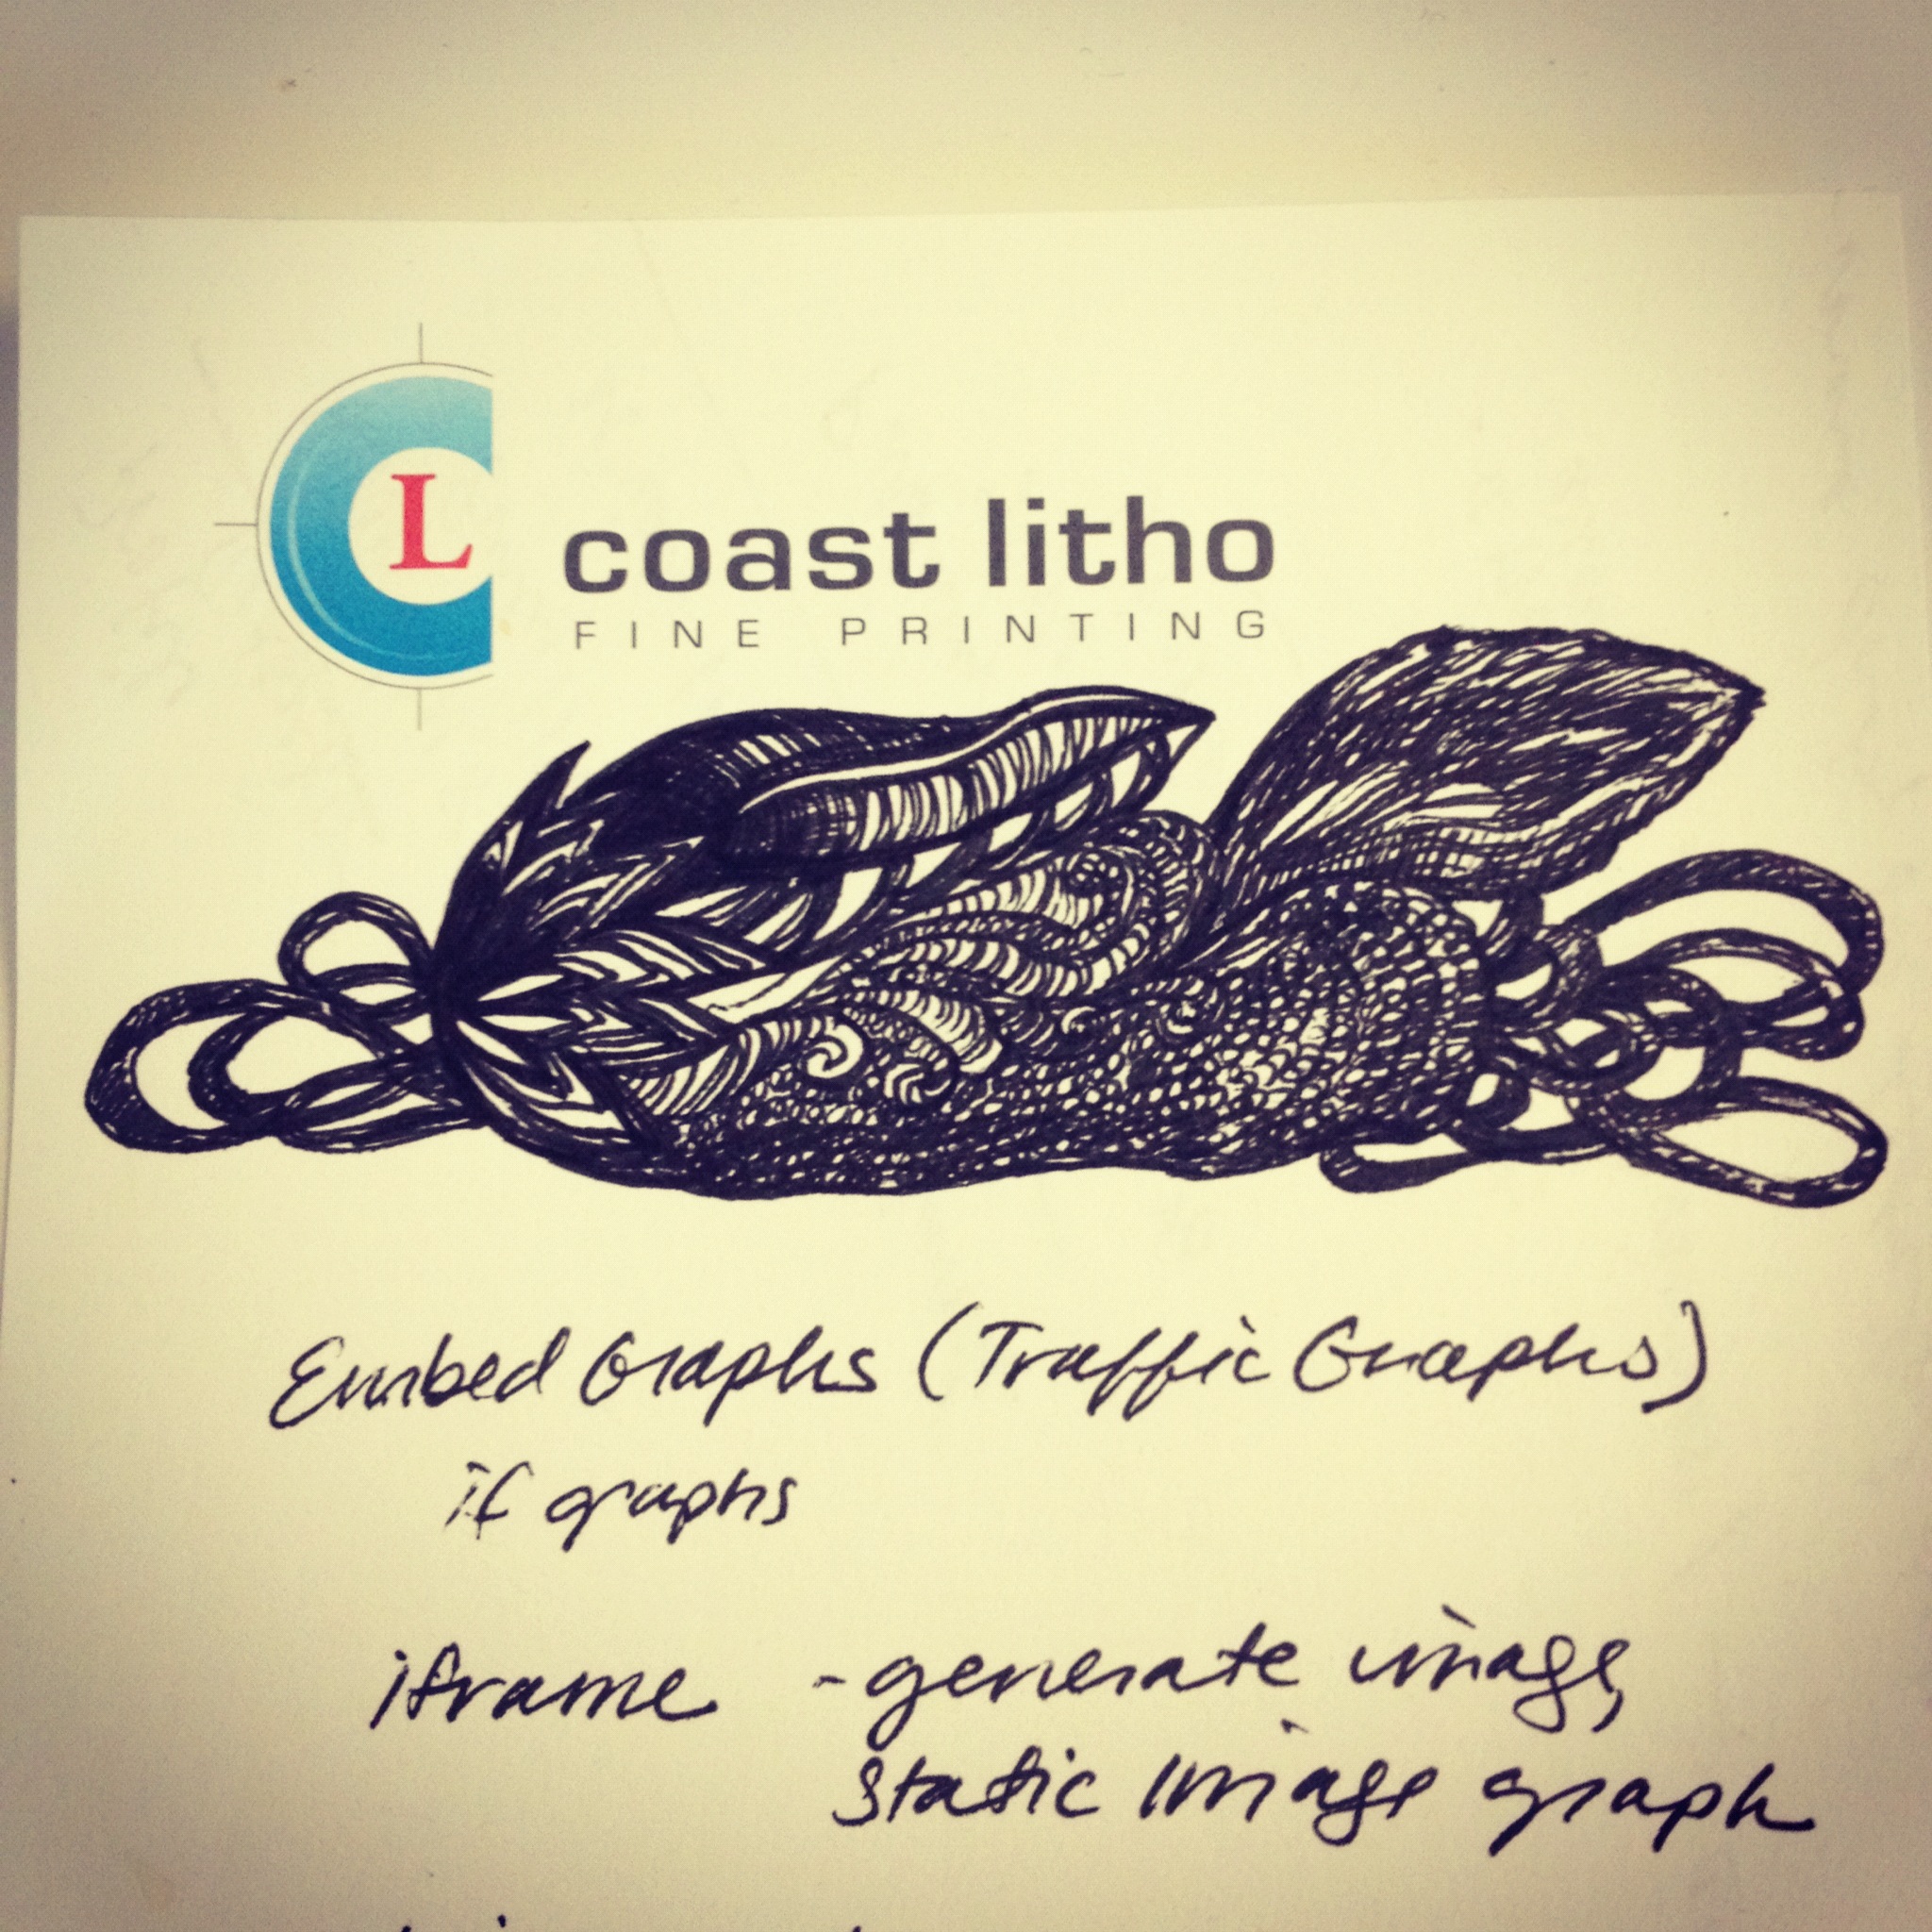 L
coast litho
FINE PRINTING
Embed Graphs (Traffic Graphs)
if graphs
iframe - generate image,
static image graph